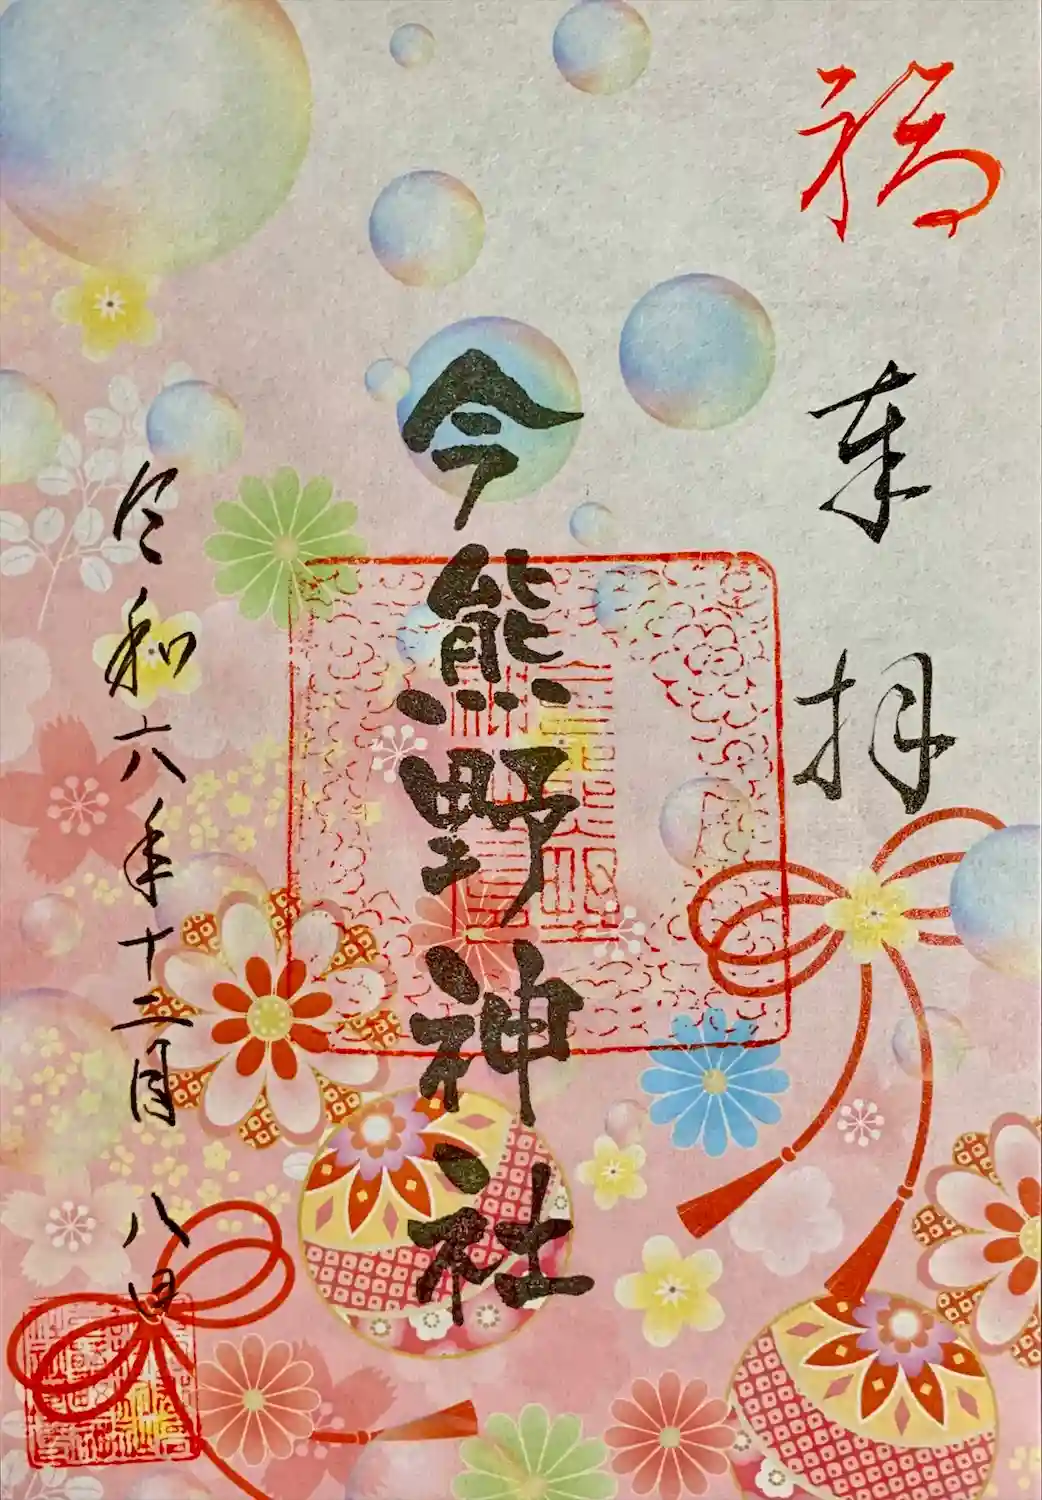 福
奉拝
今熊野神社
令和六年十二月八日